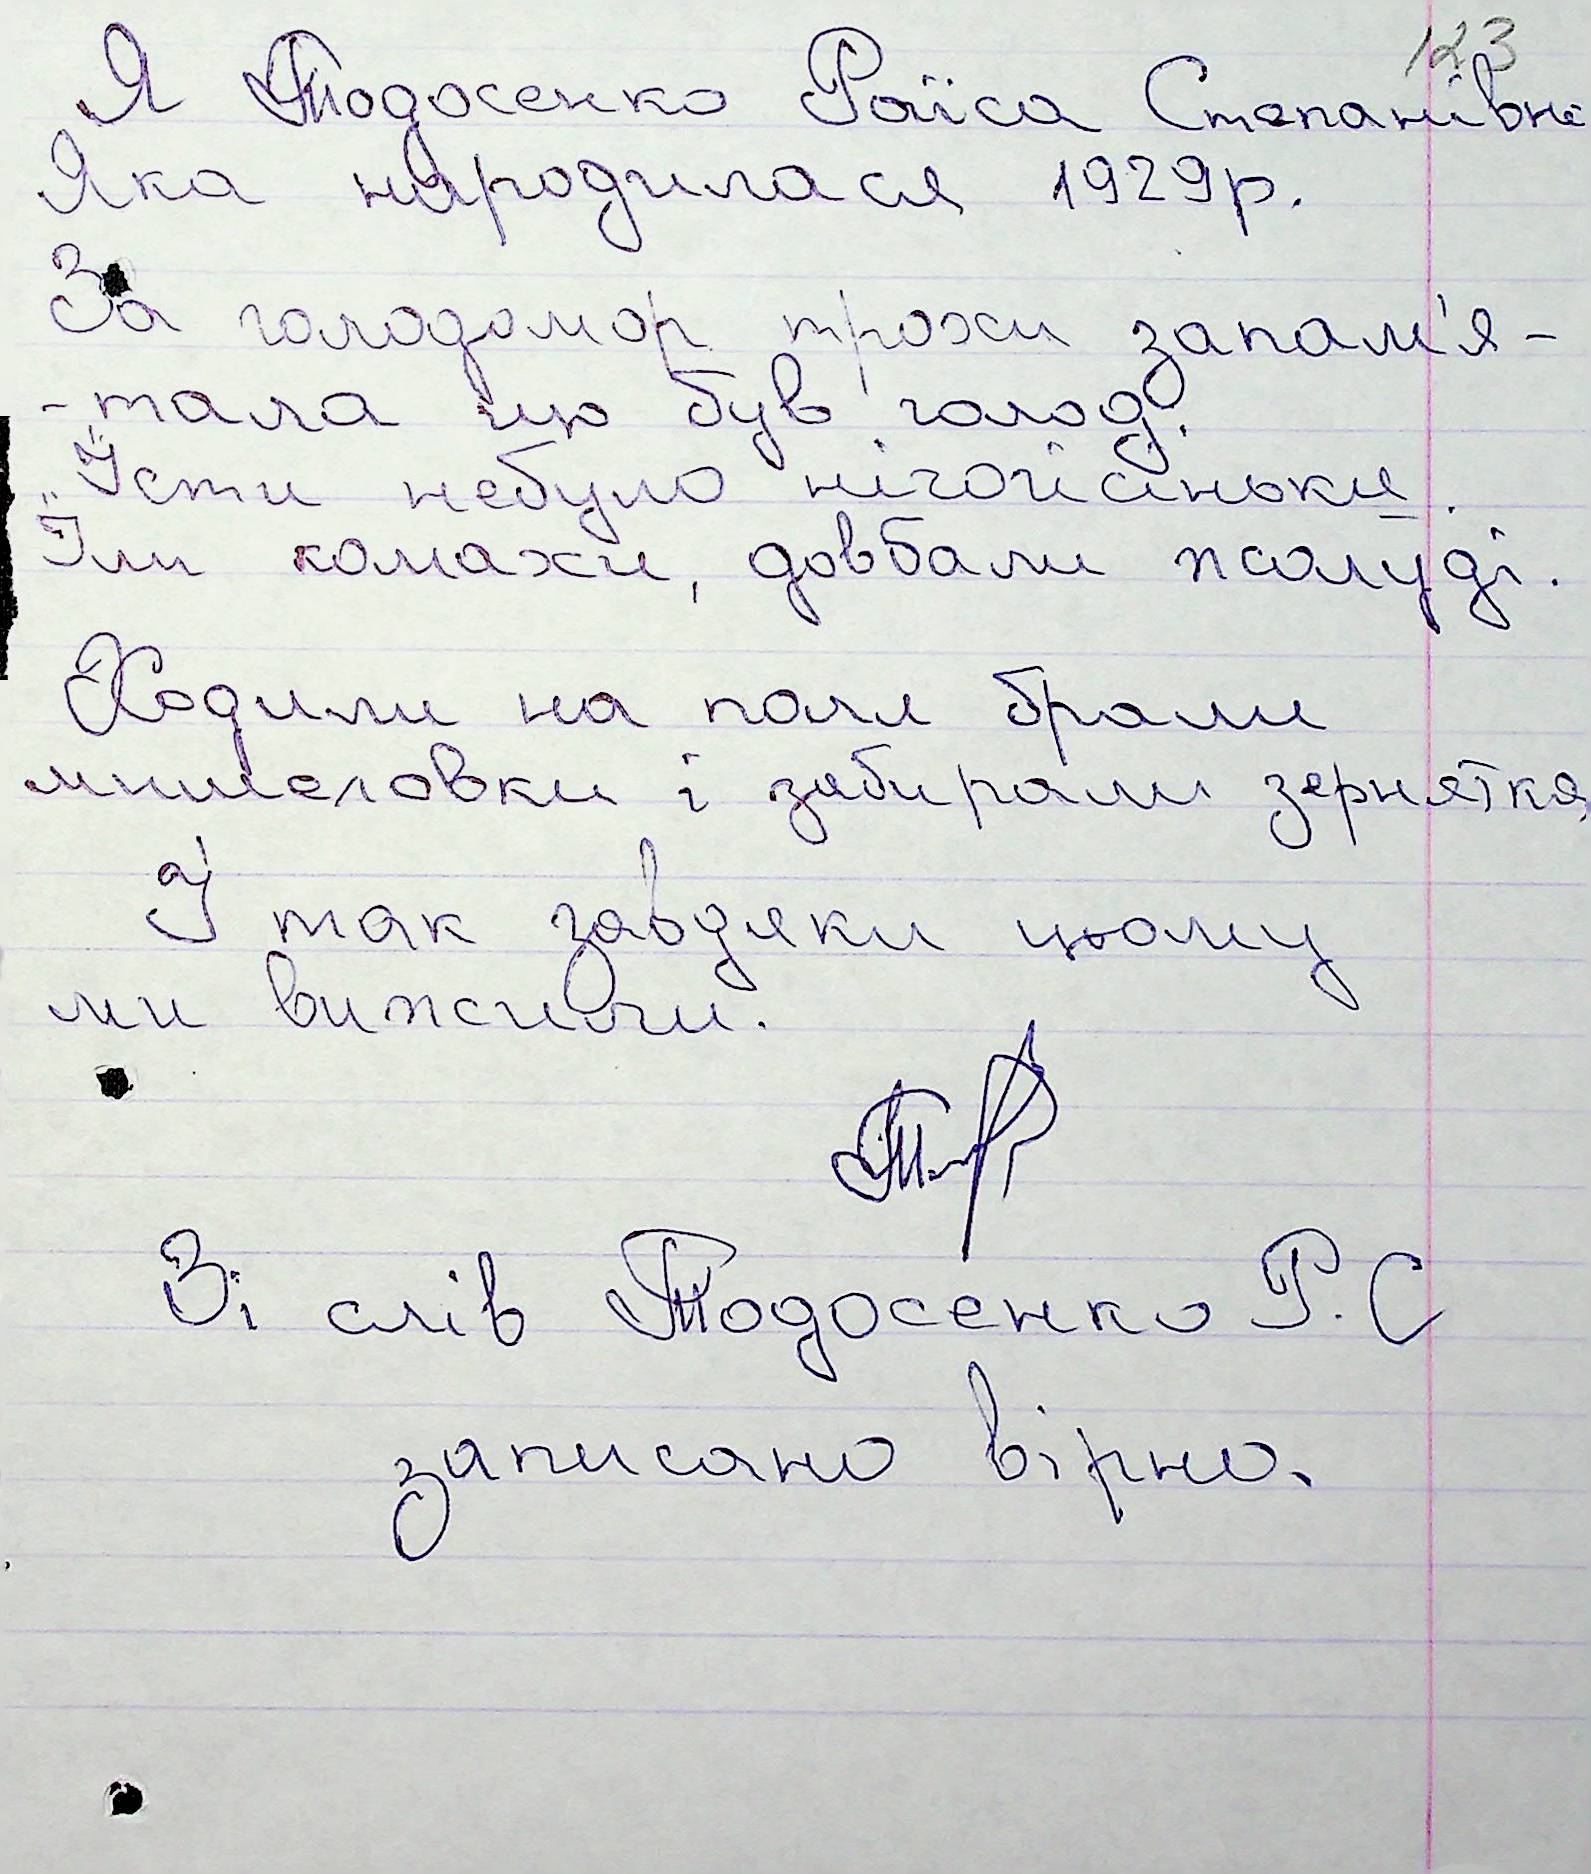 123
Я Тодосенко Раїса Степанівна
Яка народилася 1929р.
За голодомор трохи запам'я-
-тала що був голод.
Їсти небуло нічогісіньки.
Їли комахи, довбали жолуді.
Ходили на поля брали
мишеловки і забирали зернятка,
І так завдяки цьому
ми вижили.
Зі слів Тодосенко Р.С
записано вірно.